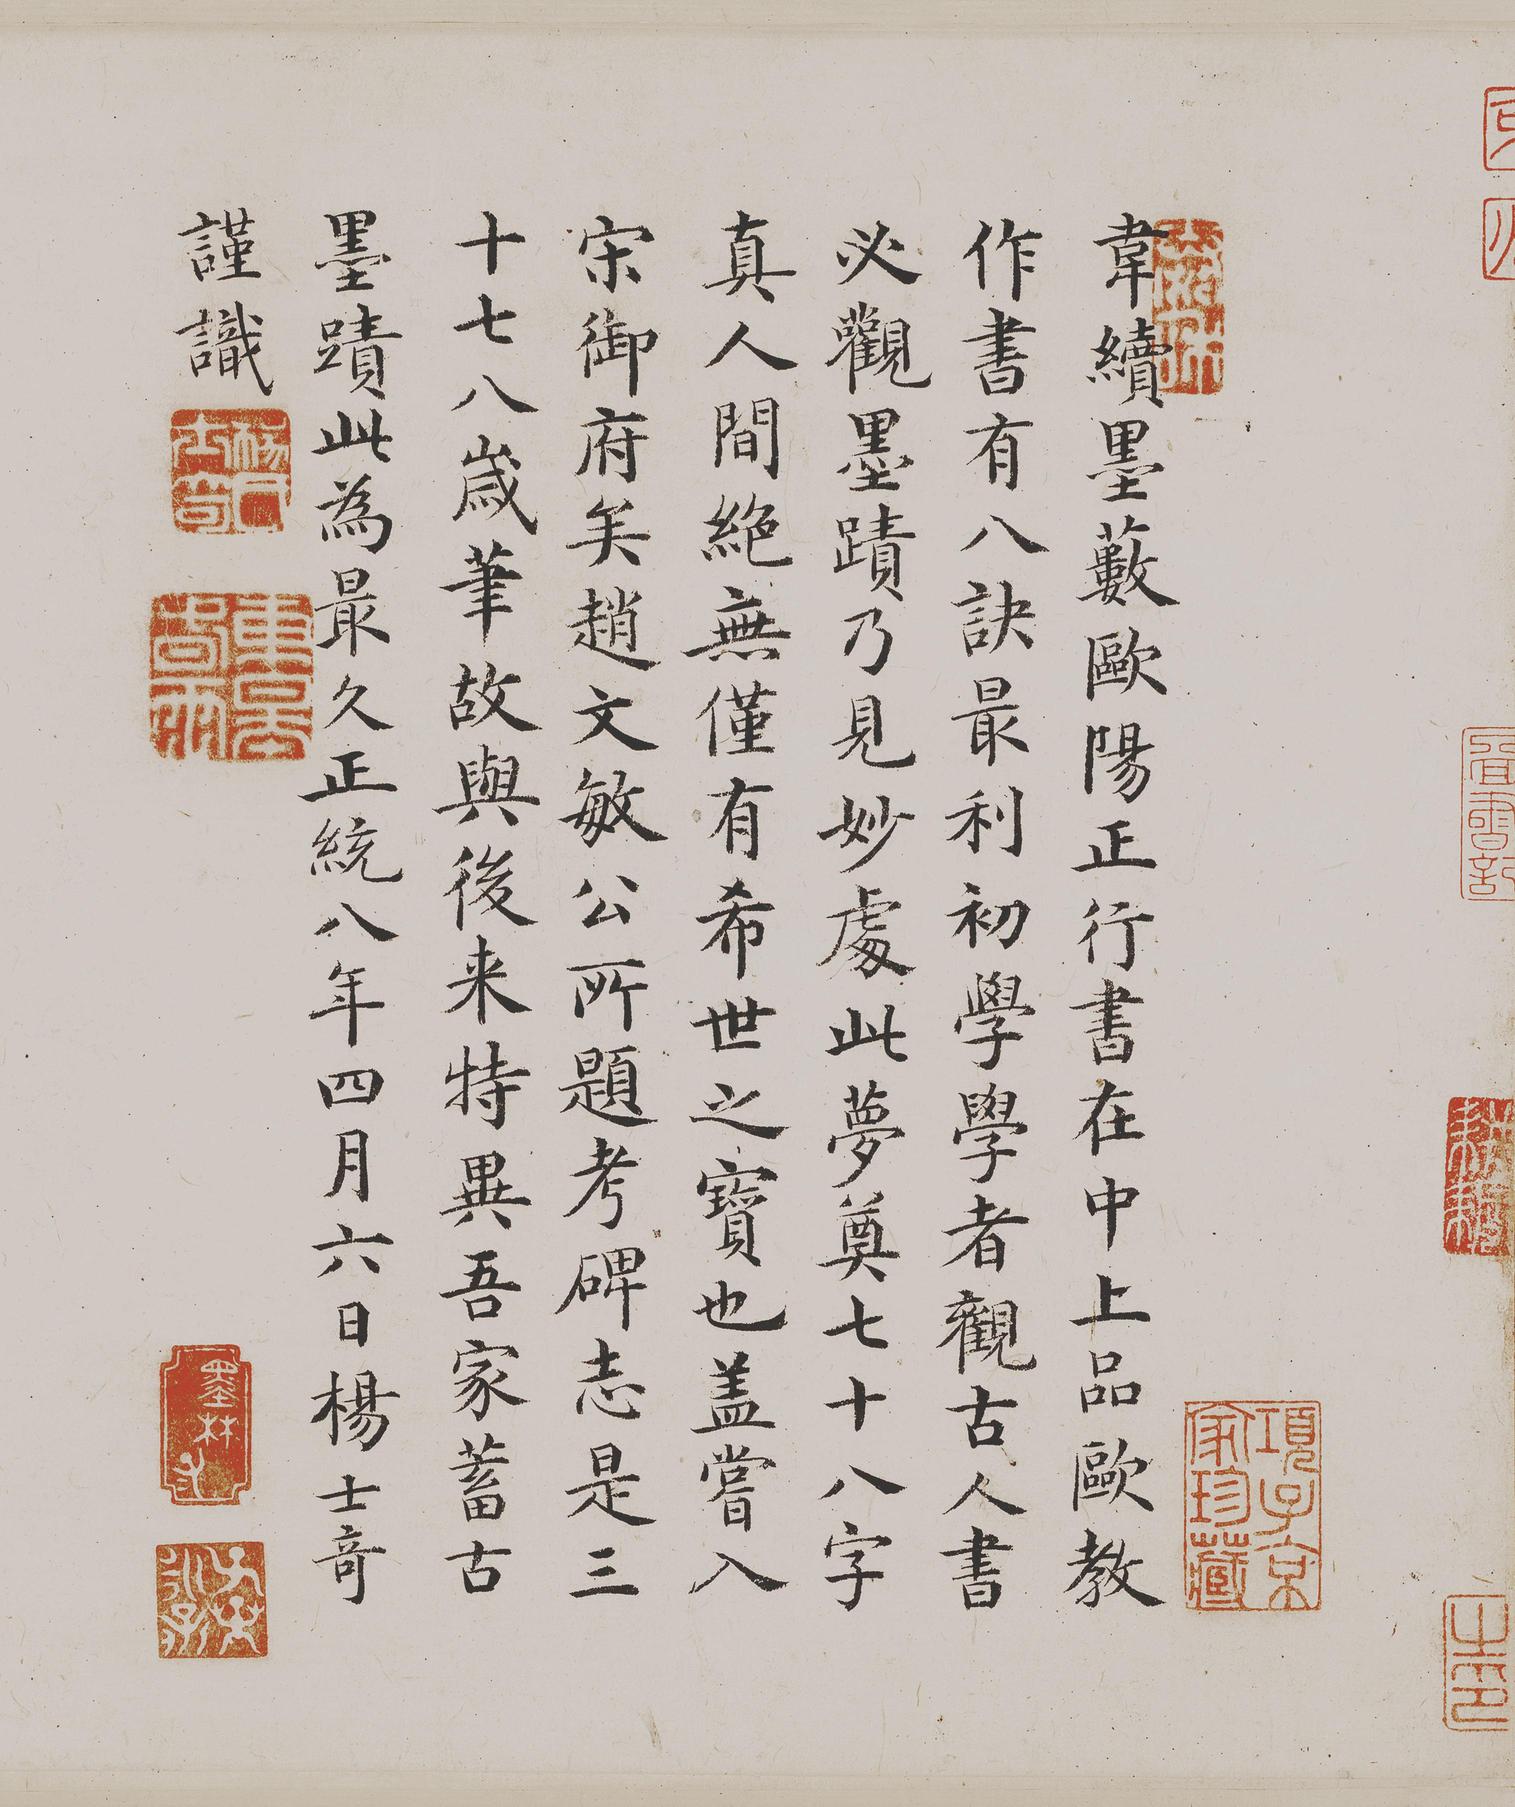 韋續墨藪歐陽正行書在中上品歐教
作書有八訣最利初學學者觀古人書
必觀墨蹟乃見妙處此夢奠七十八字
真人間絕無僅有希世之寶也盖嘗入
宋御府矣趙文敏公所題考碑志是三
十七八歲筆故與後来特異吾家蓄古
墨蹟此為最久正統八年四月六日楊士竒
謹識
項子京
家珍藏
墨林